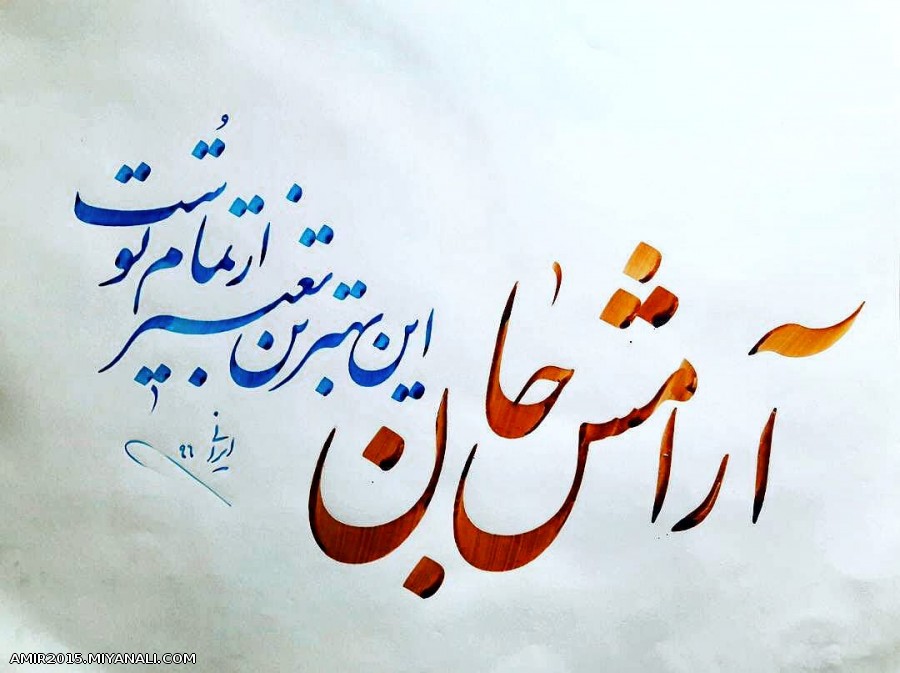 آرامش جان
این بهترین تعبیر
از تمام توُست
ایرانی ۹۶
AMIR2015.MIYANALI.COM